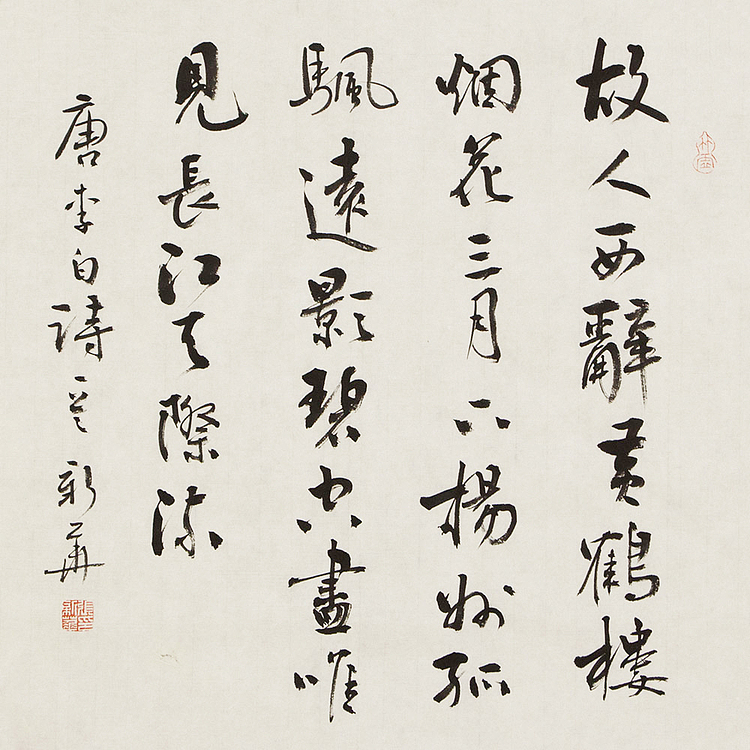 故人西辭黄鶴樓
烟花三月下楊州孤
颿遠影碧空盡唯
見長江天際流
唐李白詩一首 新華